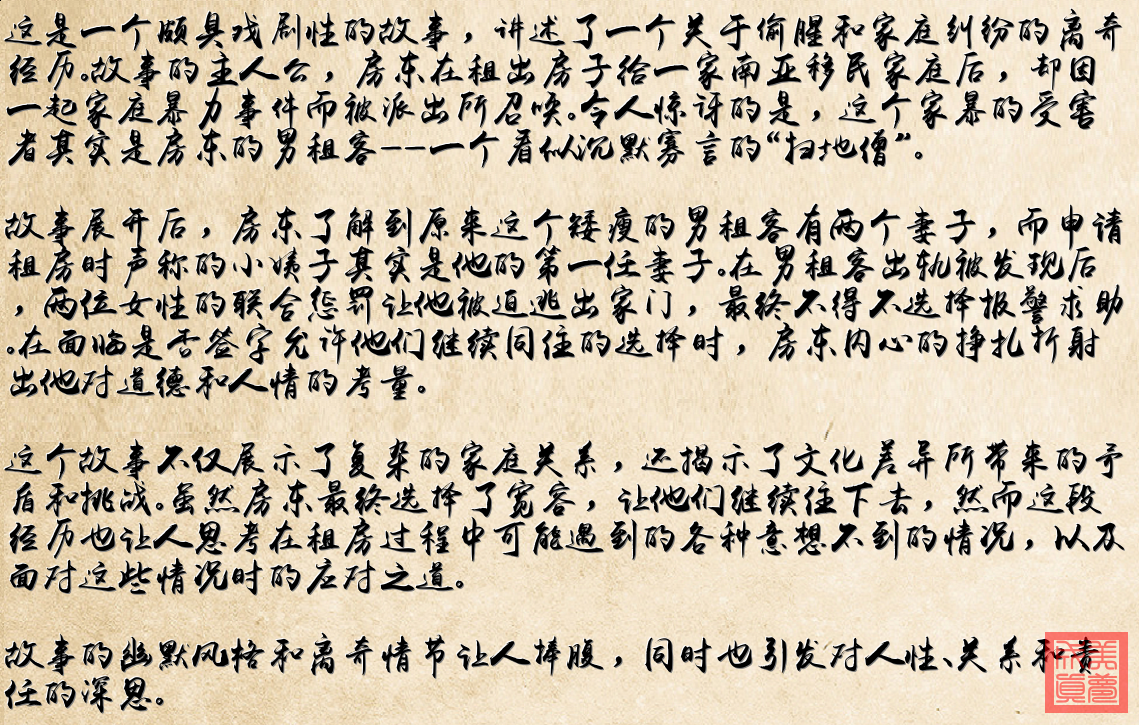 这是一个颇具戏剧性的故事，讲述了一个关于偷腥和家庭纠纷的离奇
经历。故事的主人公，房东在租出房子给一家南亚移民家庭后，却因
一起家庭暴力事件而被派出所召唤。令人惊讶的是，这个家暴的受害
者其实是房东的男租客--一个看似沉默寡言的“扫地僧”。
故事展开后，房东了解到原来这个矮瘦的男租客有两个妻子，而申请
租房时声称的小姨子其实是他的第一任妻子。在男租客出轨被发现后
，两位女性的联合惩罚让他被迫逃出家门，最终不得不选择报警求助
。在面临是否签字允许他们继续同住的选择时，房东内心的挣扎折射
出他对道德和人情的考量。
这个故事不仅展示了复杂的家庭关系，还揭示了文化差异所带来的矛
盾和挑战。虽然房东最终选择了宽容，让他们继续住下去，然而这段
经历也让人思考在租房过程中可能遇到的各种意想不到的情况，以及
面对这些情况时的应对之道。
故事的幽默风格和离奇情节让人捧腹，同时也引发对人性、关系和责
任的深思。